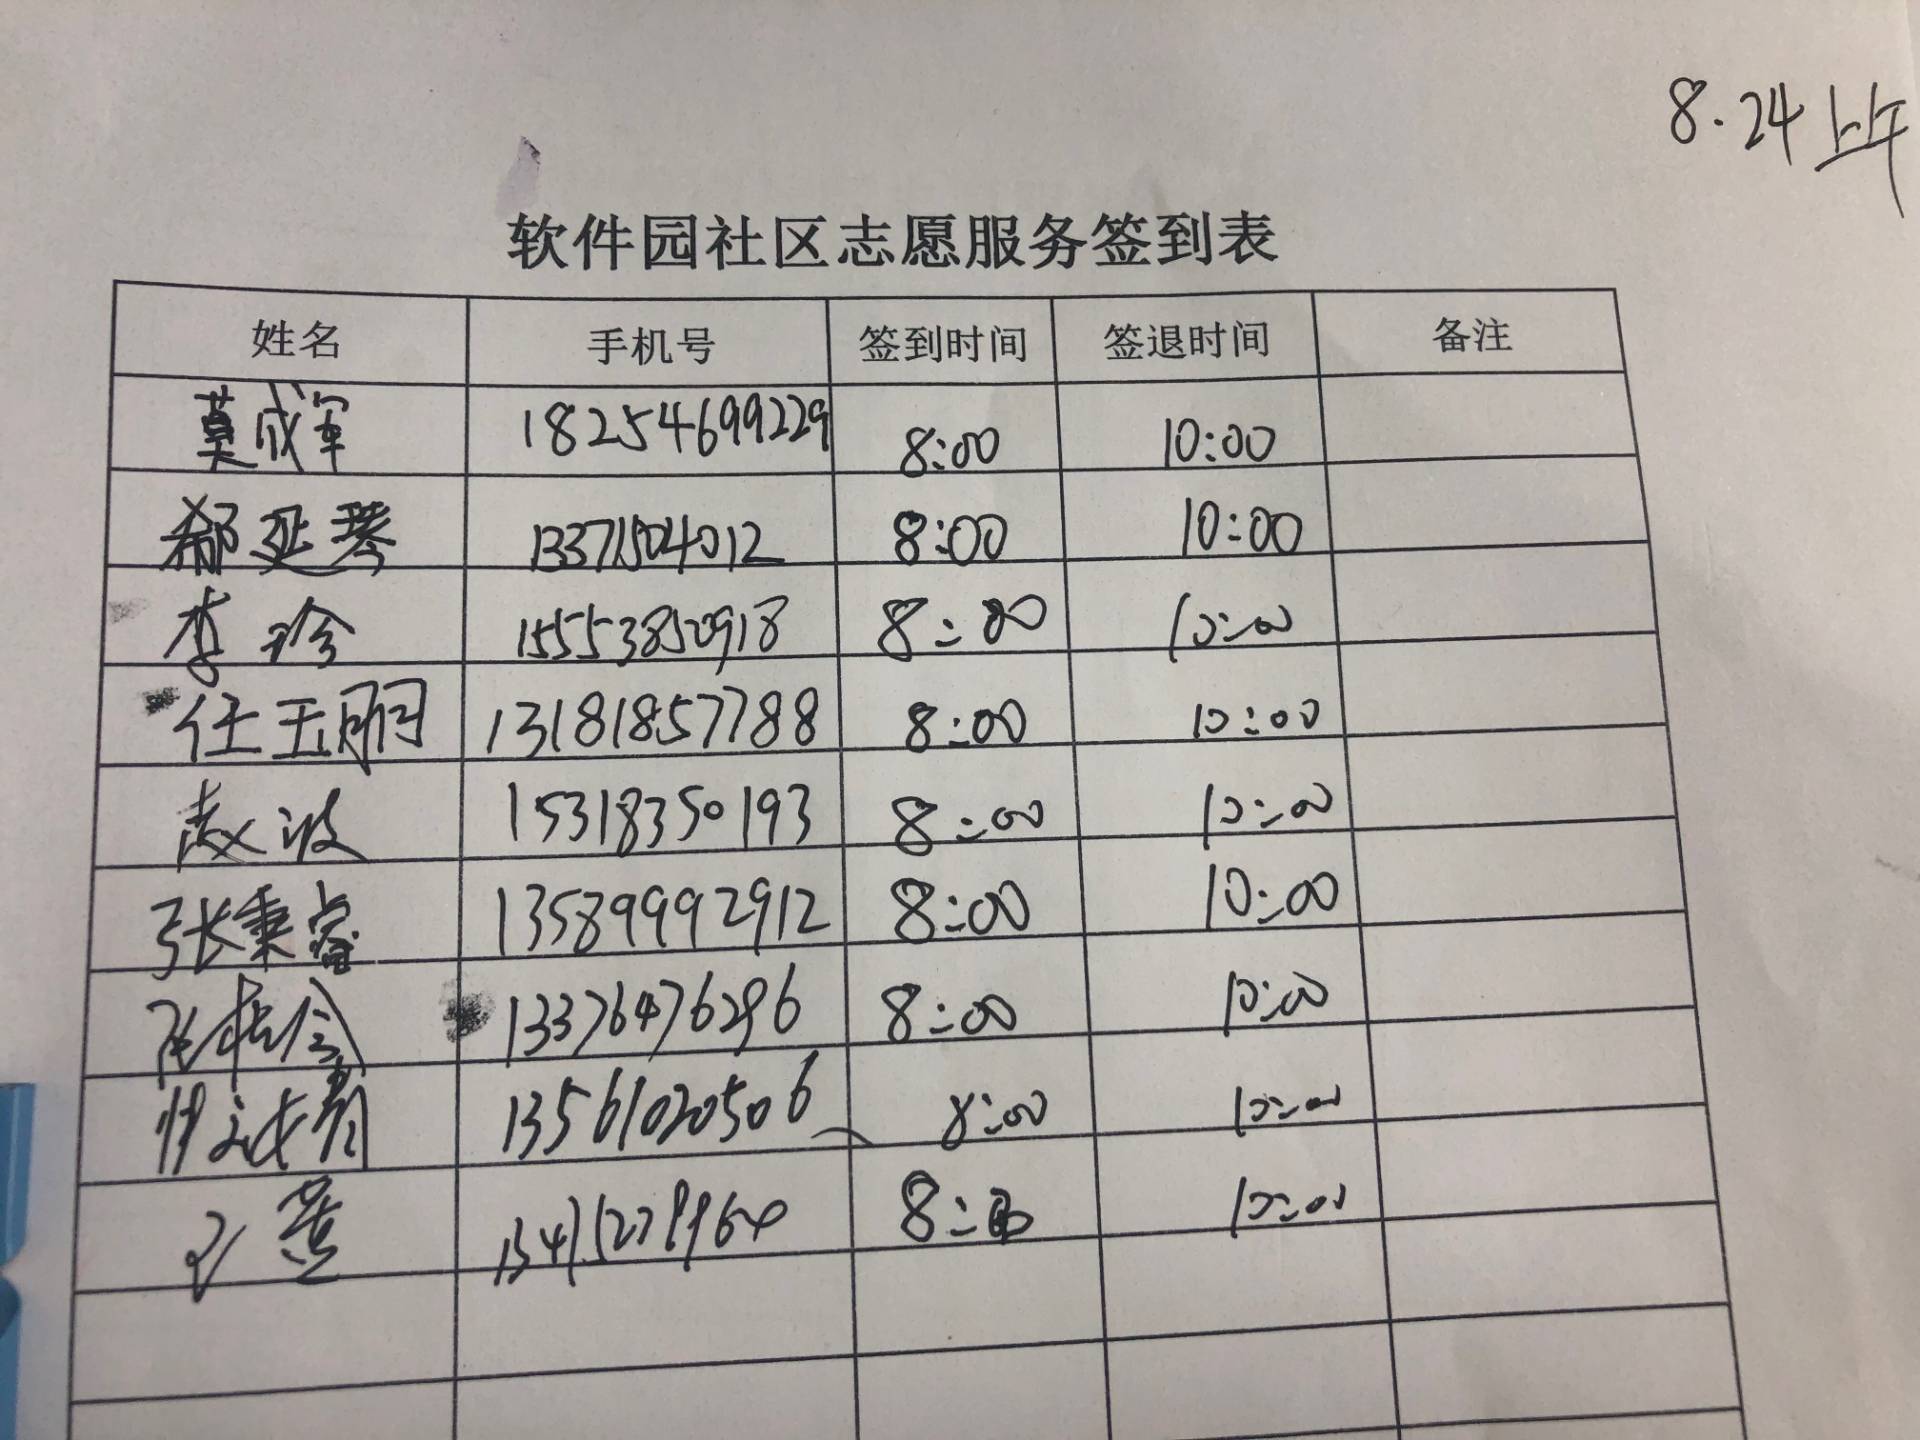 8.24上午
软件园社区志愿服务签到表
姓名 手机号 签到时间 签退时间 备注
莫成军 18254699229 8:00 10:00
郗延琴 13371504012 8:00 10:00
李珍 15553850918 8:00 10:00
任玉丽 13181857788 8:00 10:00
赵波 15318350193 8:00 10:00
张秉睿 13589992912 8:00 10:00
13376476296 8:00 10:00
13561020506 8:00 10:00
8:00 10:00